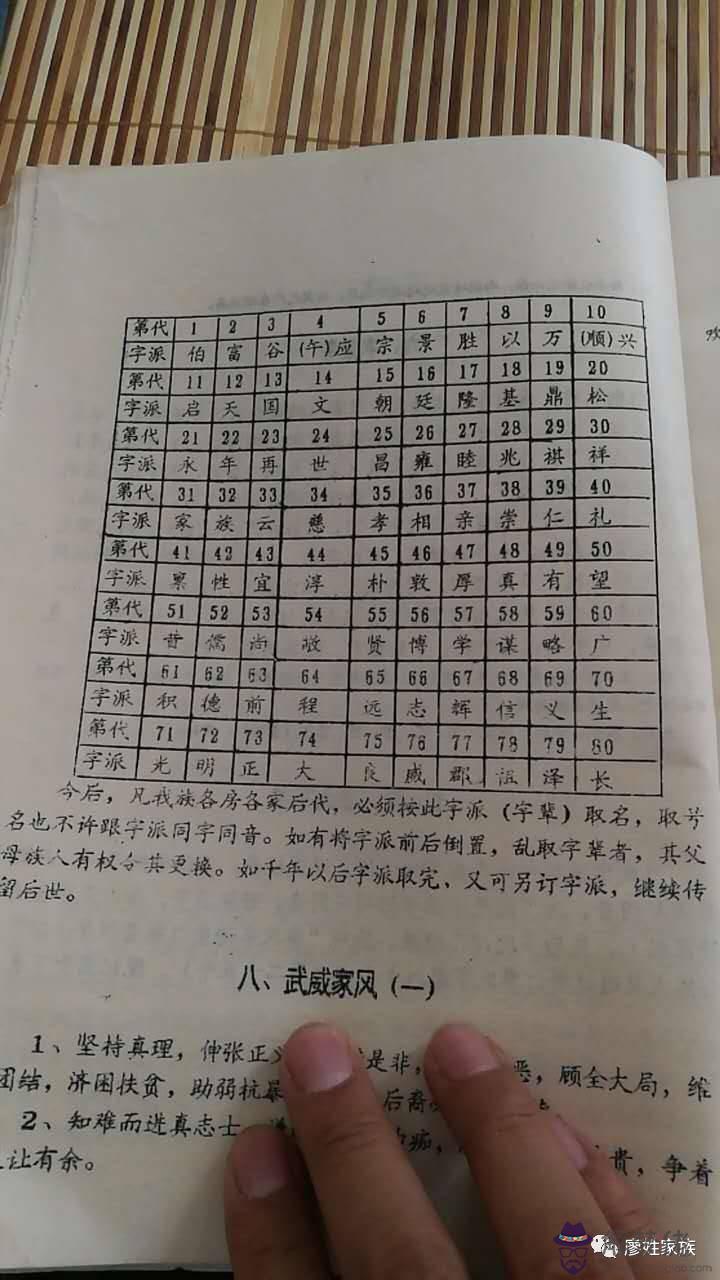 第代 1 2 3 4 5 6 7 8 9 10
字派 伯 富 谷 (午)应 宗 景 胜 以 万 (顺)兴
第代 11 12 13 14 15 16 17 18 19 20
字派 启 天 国 文 朝 廷 隆 基 鼎 松
第代 21 22 23 24 25 26 27 28 29 30
字派 永 年 再 世 昌 雍 睦 兆 祺 祥
第代 31 32 33 34 35 36 37 38 39 40
字派 家 族 云 慈 孝 相 亲 崇 仁 礼
第代 41 42 43 44 45 46 47 48 49 50
字派 禀 性 宜 淳 朴 敦 厚 真 有 望
第代 51 52 53 54 55 56 57 58 59 60
字派 昔 儒 尚 敬 贤 博 学 谋 略 广
第代 61 62 63 64 65 66 67 68 69 70
字派 积 德 前 程 远 志 辉 信 义 生
第代 71 72 73 74 75 76 77 78 79 80
字派 光 明 正 大 良 威 郡 泽 长
今后，凡我族各房各家后代，必须按此字派（字辈）取名，取号
名也不许跟字派同字同音。如有将字派前后倒置，乱取字辈者，其父
母族人有权令其更换。如千年以后字派取完、又可另订字派，继续传
留后世。
八、武威家风（一）
1、坚持真理，伸张正义 是非， 恶，顾全大局，维
团结，济困扶贫，助弱抗暴 后裔
2、知难而进真志士 痴， 贵，争着
让有余。
廖姓家族